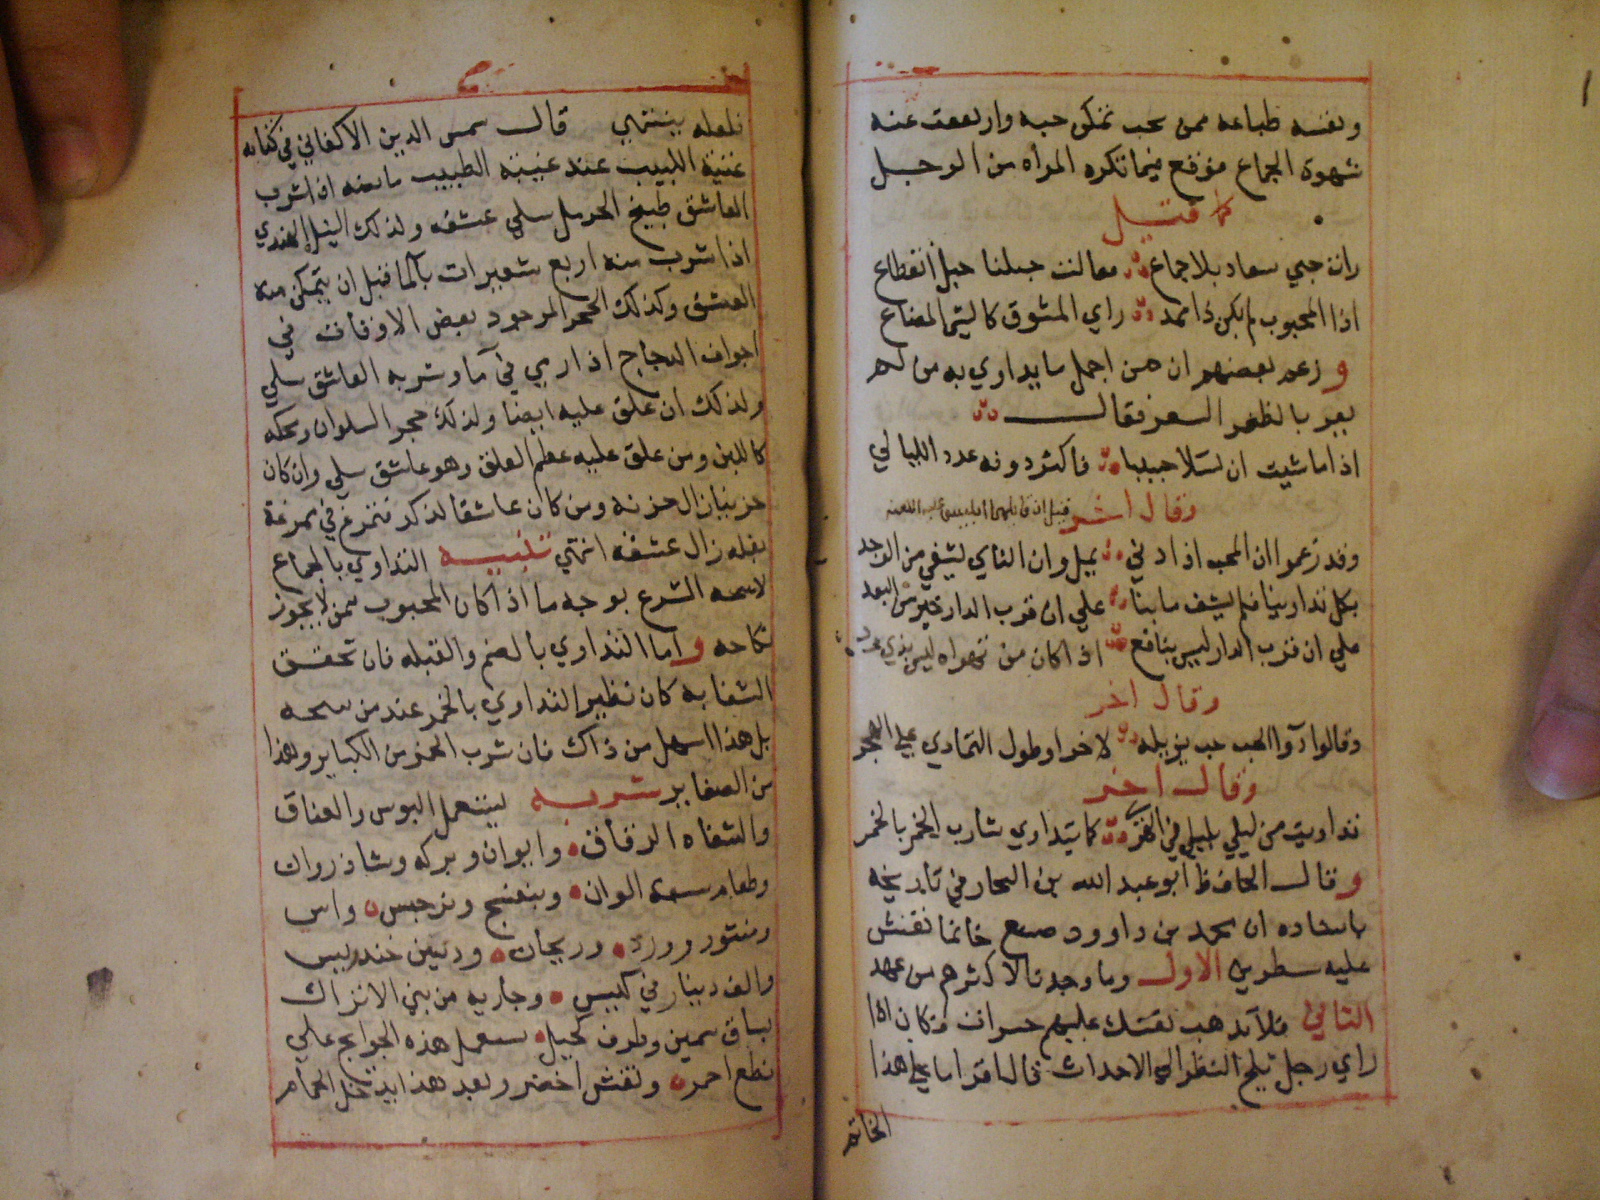 ونفسه طباعه ممن يحب تمكن حبه وارتفعت عنه
شهوة الجماع فوقع فيما تكره المراه من الرجل
كما قيل
رات حبي سعاد بلا جماع فقالت حبلنا حبل انقطاع
اذا المحبوب لم يكن ذا راي المشوق كاليتيم المضاع
و زعم بعضهم ان من اجمل ما يداوي به من لم
يعبر بالظفر السفر فقال
اذا ما شيت ان تسلا حبيبا فاكثر دونه عدد الليالي
وقال اخر
وقد زعموا ان المحب اذا دني يمل وان الناي يشفي من الوجد
بكل تداوينا فلم يشف ما بنا علي ان قرب الدار خير من البعد
علي ان قرب الدار ليس بنافع اذا كان من تهواه ليس بذي ود
وقال اخر
وقالوا دوآ الحب حب يزيله لاخر او طول التمادي علي الهجر
وقال اخر
تداويت من ليلي بليلي كما يتداوي شارب الخمر بالخمر
و قال الحافظ ابو عبد الله بن النجار في تاريخه
باسناده ان محمد بن داوود صنع خاتما نقش
عليه سطرين الاول وما وجدنا لاكثرهم من عهد
الثاني فلا تذهب نفسك عليهم حسرات فكان اذا
راي رجل يلح النظر الي الاحداث قال اقرا ما علي هذا
الخاتم
فلعله ينتهي قال شمس الدين الاكفاني في كتابه
غنية اللبيب عند غيبة الطبيب ما نصه اذا شرب
العاشق طبيخ الحرمل سلي عشقه ولذلك النيل الهندي
اذا شرب منه اربع شعيرات بالما قبل ان يتمكن منه
العشق وكذلك الحجر الموجود بعض الاوقات في
اجواف الدجاج اذا ربي في مآ وشربه العاشق سلي
ولذلك ان علق عليه ايضا ولذلك حجر السلوان وحكه
كاللبن ومن علق عليه عظم العلق وهو عاشق سلي وان كان
حزينا زال حزنه ومن كان عاشقا لذكر فتمرغ في مرغة
بغله زال عشقه انتهي تنبيه التداوي بالجماع
لا يبيحه الشرع بوجه ما اذا كان المحبوب ممن لا يجوز
نكاحه و اما التداوي بالضم والقبله فان تحقق
الشفا به كان نظير التداوي بالخمر عند من يبيحه
بل هذا اسهل من ذاك فان شرب الخمر من الكباير وهذا
من الصغاير شربه يستعمل البوس والعناق
والشفاه الرقاق وايوان وبركه وشاذروان
وطعام سبعة الوان وبنفسج ونرجس واس
ومنتور وورد وريحان ودنين خندريس
والف دينار في كيس وجاريه من بني الاتراك
بساق سمين وطرف كحيل يستعمل هذه الحوايج علي
نطع احمر ونقش اخضر وبعد هذا يدخل الحمام